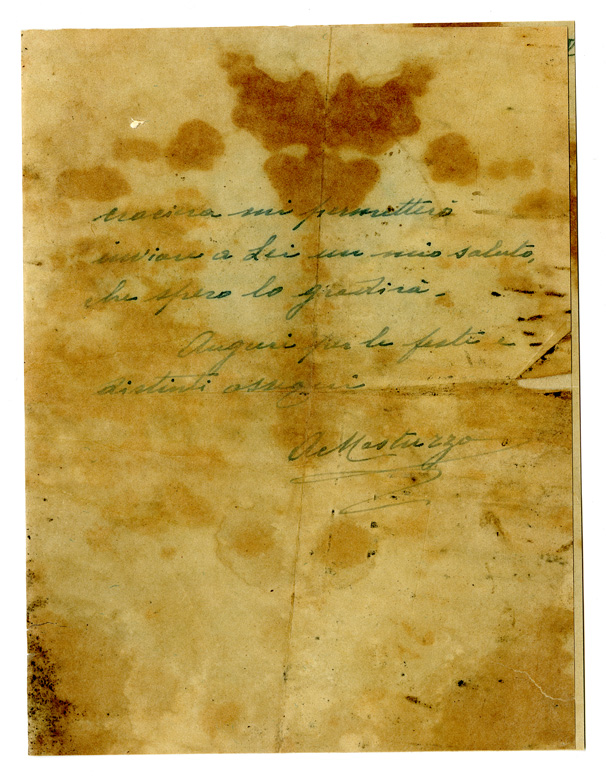 crocina mi permetterò
inviare a Lei un mio saluto,
che spero lo gradirà -
Auguri per le feste e -
distinti ossequi
A Masturzo